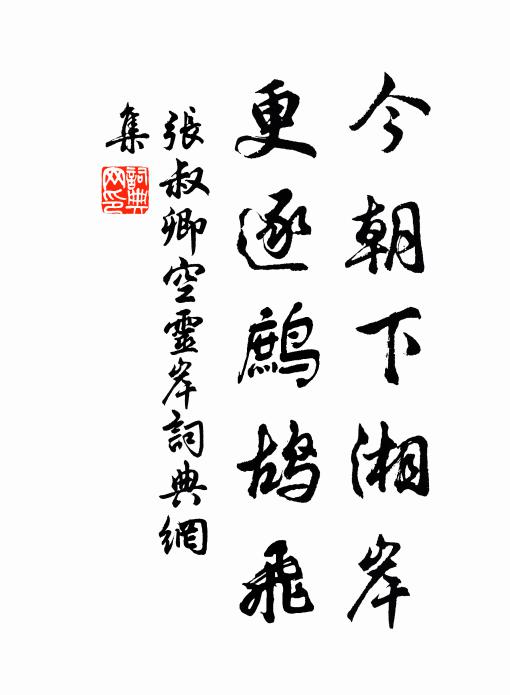 今朝下湘岸
更逐鷓鴣飛
張叔卿空靈岸詞典網
集
詞典網印